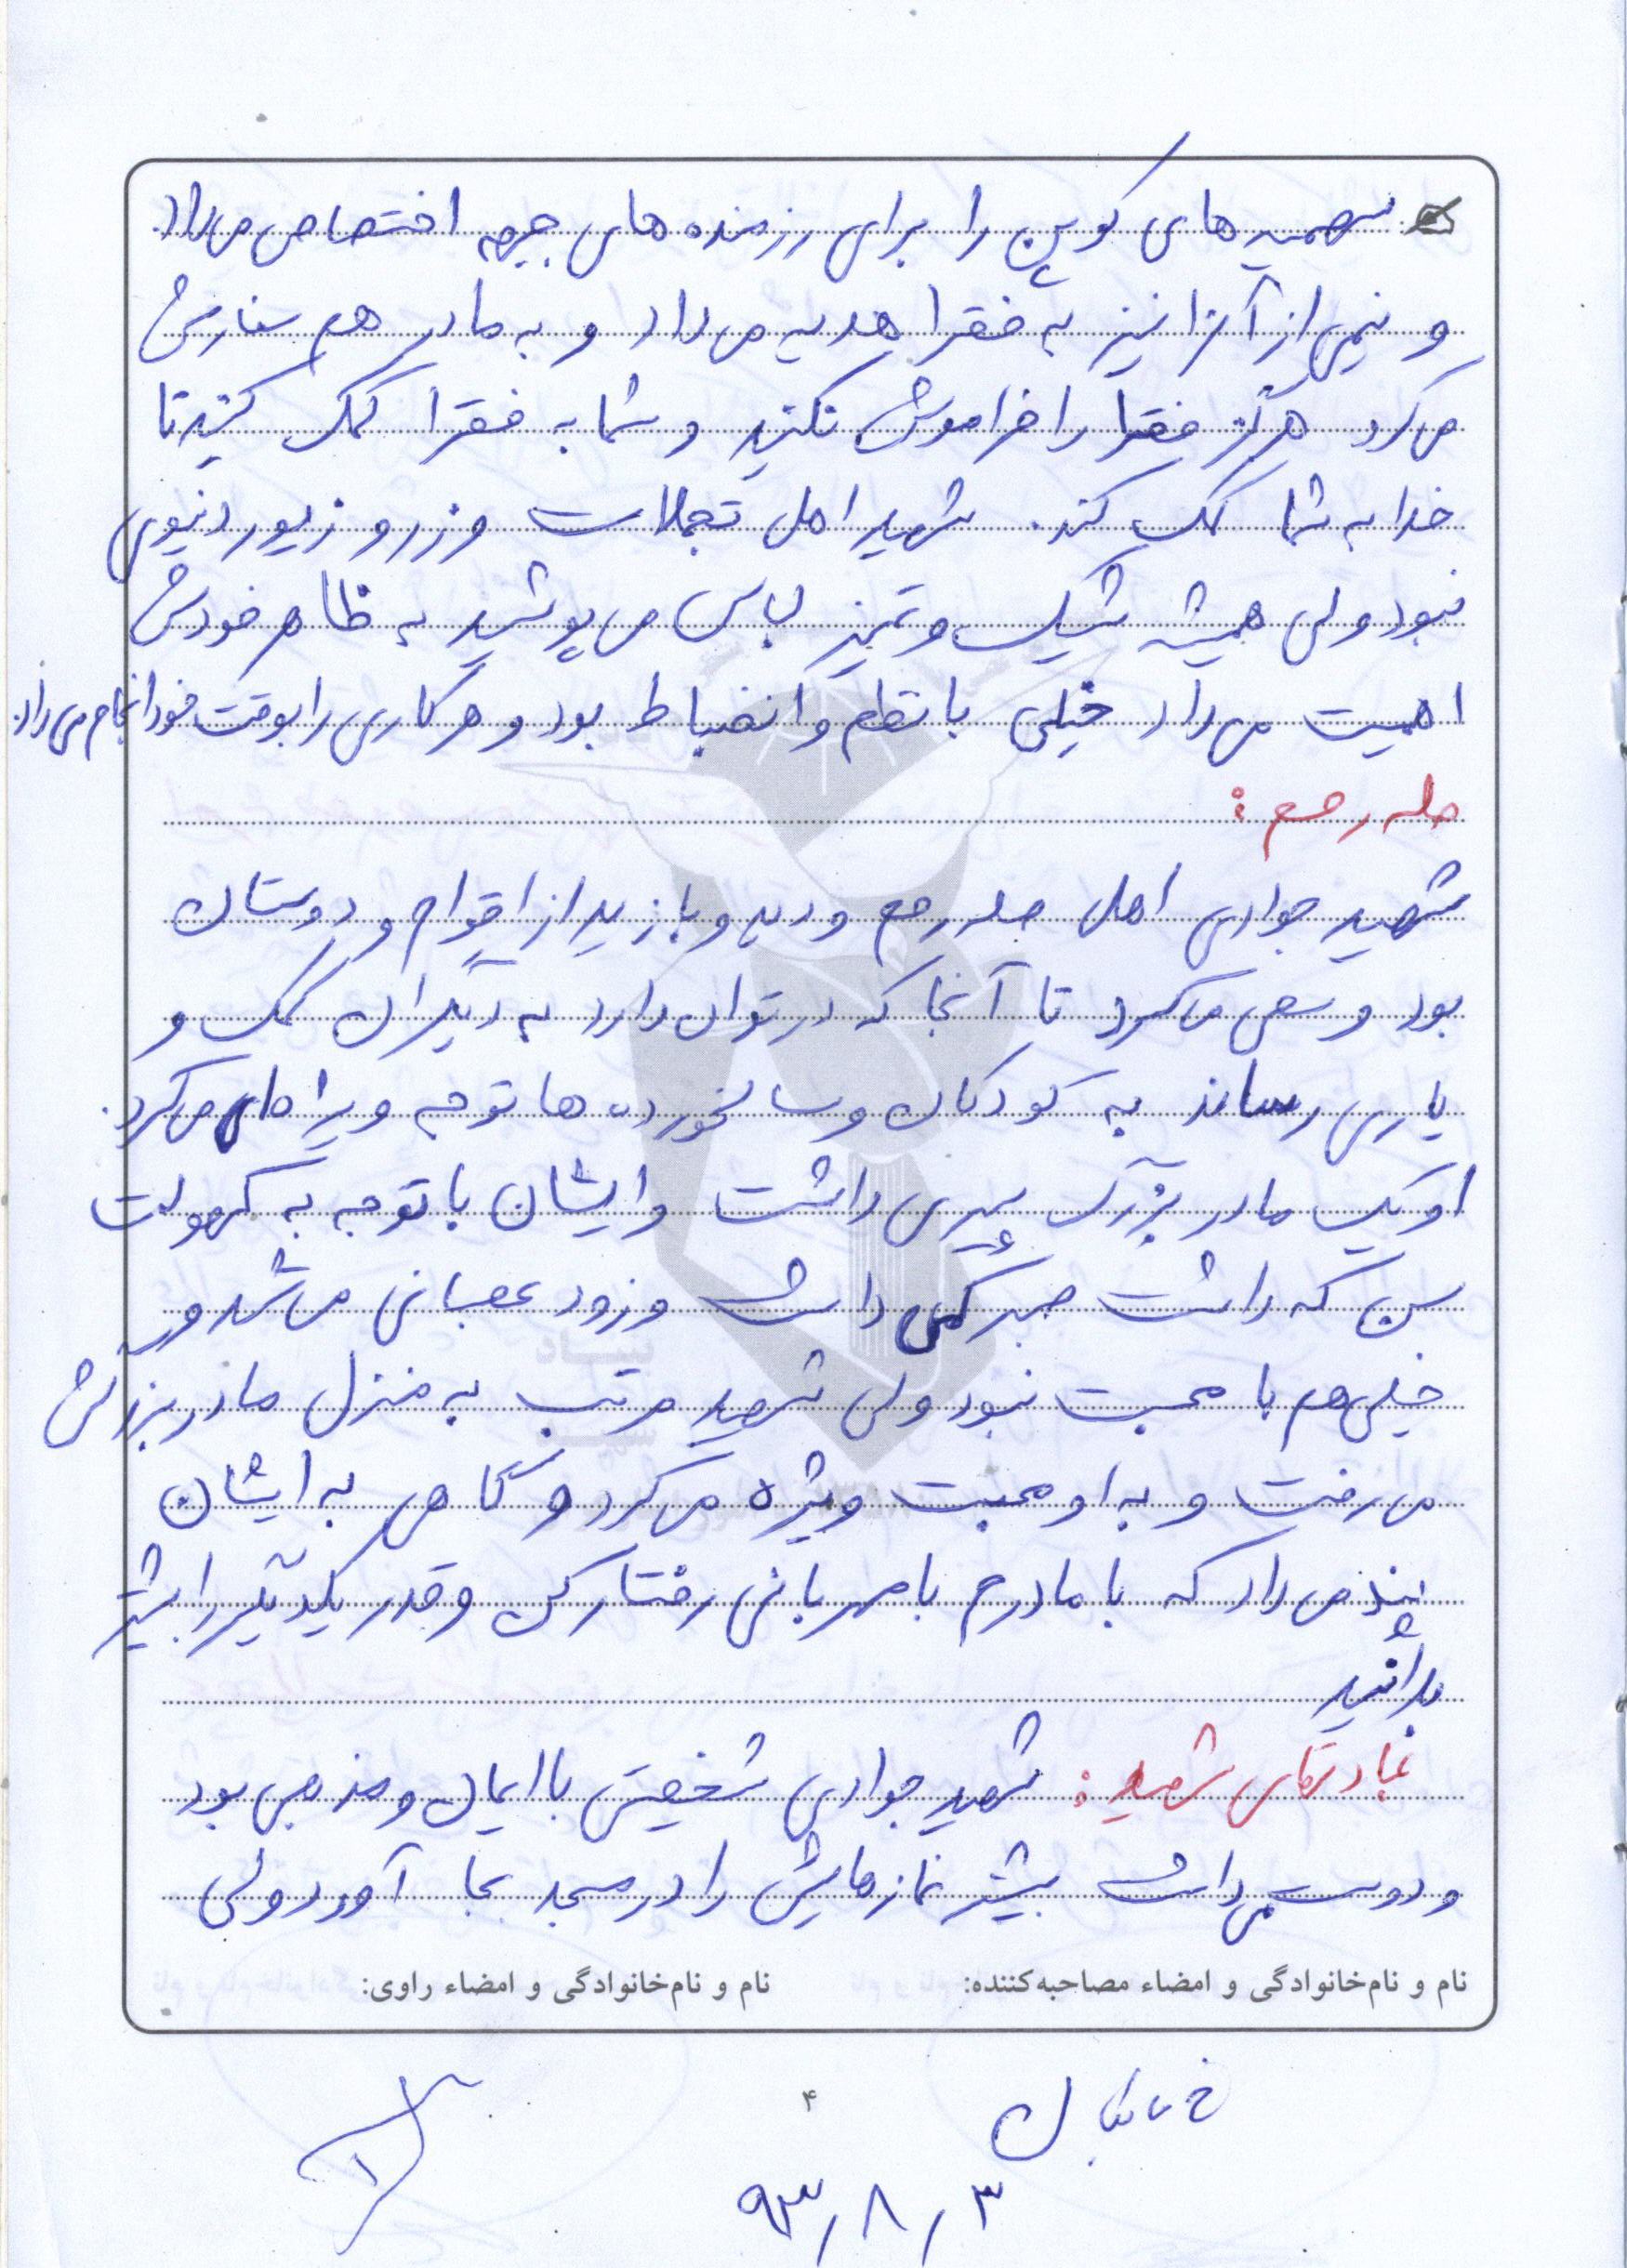 سهمیه های کوپن را برای رزمنده های جبهه اختصاص می داد
و نیمی از آنرا نیز به فقرا هدیه می داد و به مادر هم سفارش
می کرد هرگز فقرا را فراموش نکنید و شما به فقرا کمک کنید تا
خدا به شما کمک کند. شهید اهل تجملات و زر و زیور دنیوی
نبود ولی همیشه شیک و تمیز لباس می پوشید به ظاهر خودش
اهمیت می داد خیلی با نظم و انضباط بود و هر کاری را بوقت خود انجام می داد.
صله رحم:
شهید جوادی اهل صله رحم و دید و بازدید از اقوام و دوستان
بود و سعی می کرد تا آنجا که در توان دارد به دیگران کمک و
یاری رساند به کودکان و سالخورده ها توجه ویژه ای می کرد.
او یک مادر بزرگ پیری داشت و ایشان با توجه به کهولت
سن که داشت صبر کمی داشت و زود عصبانی می شد و
خیلی هم با محبت نبود ولی شهید مرتب به منزل مادر بزرگش
می رفت و به او محبت ویژه می کرد و گاهی به ایشان
پند می داد که با مادرم با مهربانی رفتار کن و قدر یکدیگر را بیشتر
بدانید
عبادتهای شهید: شهید جوادی شخصیتی با ایمان و مذهبی بود
و دوست می داشت بیشتر نمازهایش را در مسجد بجا آورد ولی
نام و نام‌خانوادگی و امضاء مصاحبه‌کننده: نام و نام‌خانوادگی و امضاء راوی:
۴
۹۳/۸/۳